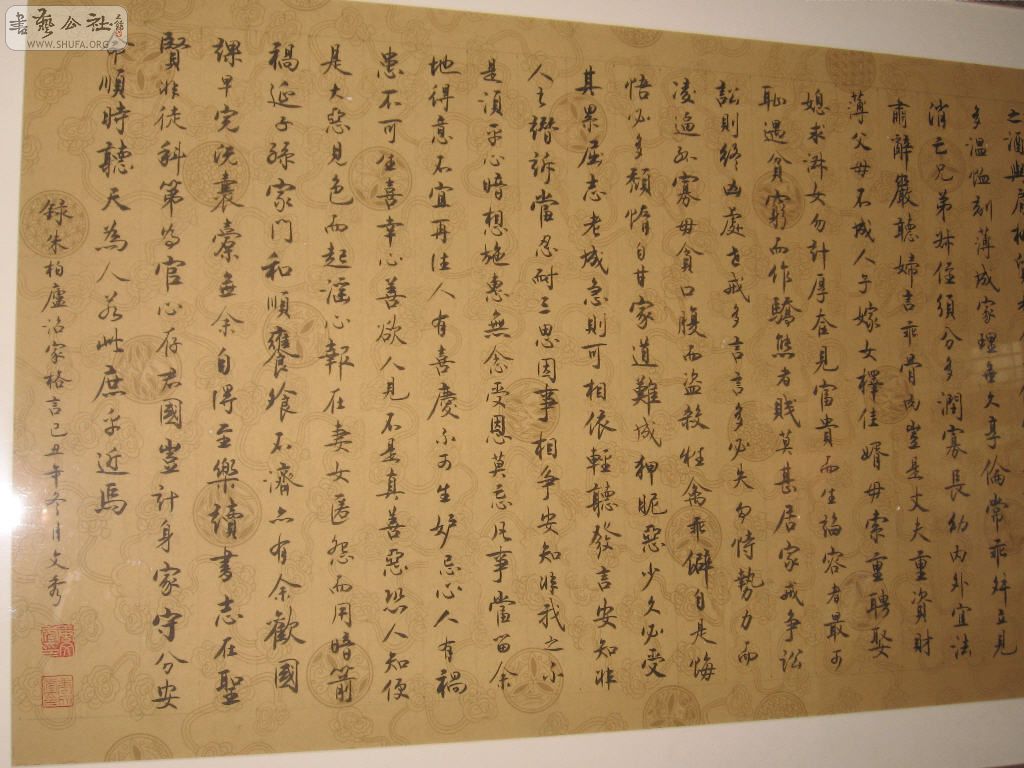 之酒與肩挑貿
多溫恤刻薄城家理無久享倫常乖舛立見
消亡兄弟叔侄須分多潤寡長幼內外宜法
肅辭嚴聽婦言乖骨肉豈是丈夫重資財
薄父母不成人子嫁女擇佳婿毋索重聘娶
媳求淑女勿計厚奩見富貴而生諂容者最可
恥遇貧窮而作驕態者賤莫甚居家戒爭訟
訟則終凶處世戒多言言多必失勿恃勢力而
凌逼孤寡毋貪口腹而盜殺牲禽乖僻自是悔
悟必多頹惰自甘家道難城狎昵惡少久必受
其累屈志老城急則可相依輕聽發言安知非
人之譖訴當忍耐三思因事相爭安知非我之不
是須平心暗想施惠無念受恩莫忘凡事當留余
地得意不宜再往人有喜慶不可生妒忌心人有禍
患不可生喜幸心善欲人見不是真善惡恐人知便
是大惡見色而起淫心報在妻女匿怨而用暗箭
禍延子孫家門和順饔飧不濟亦有余歡國
課早完沉囊橐無余自得至樂讀書志在聖
賢非徒科第為官心存君國豈計身家守分安
命順時聽天為人若此庶乎近焉
錄朱柏廬治家格言己丑年冬月文秀
書藝公社
WWW.SHUFA.ORG